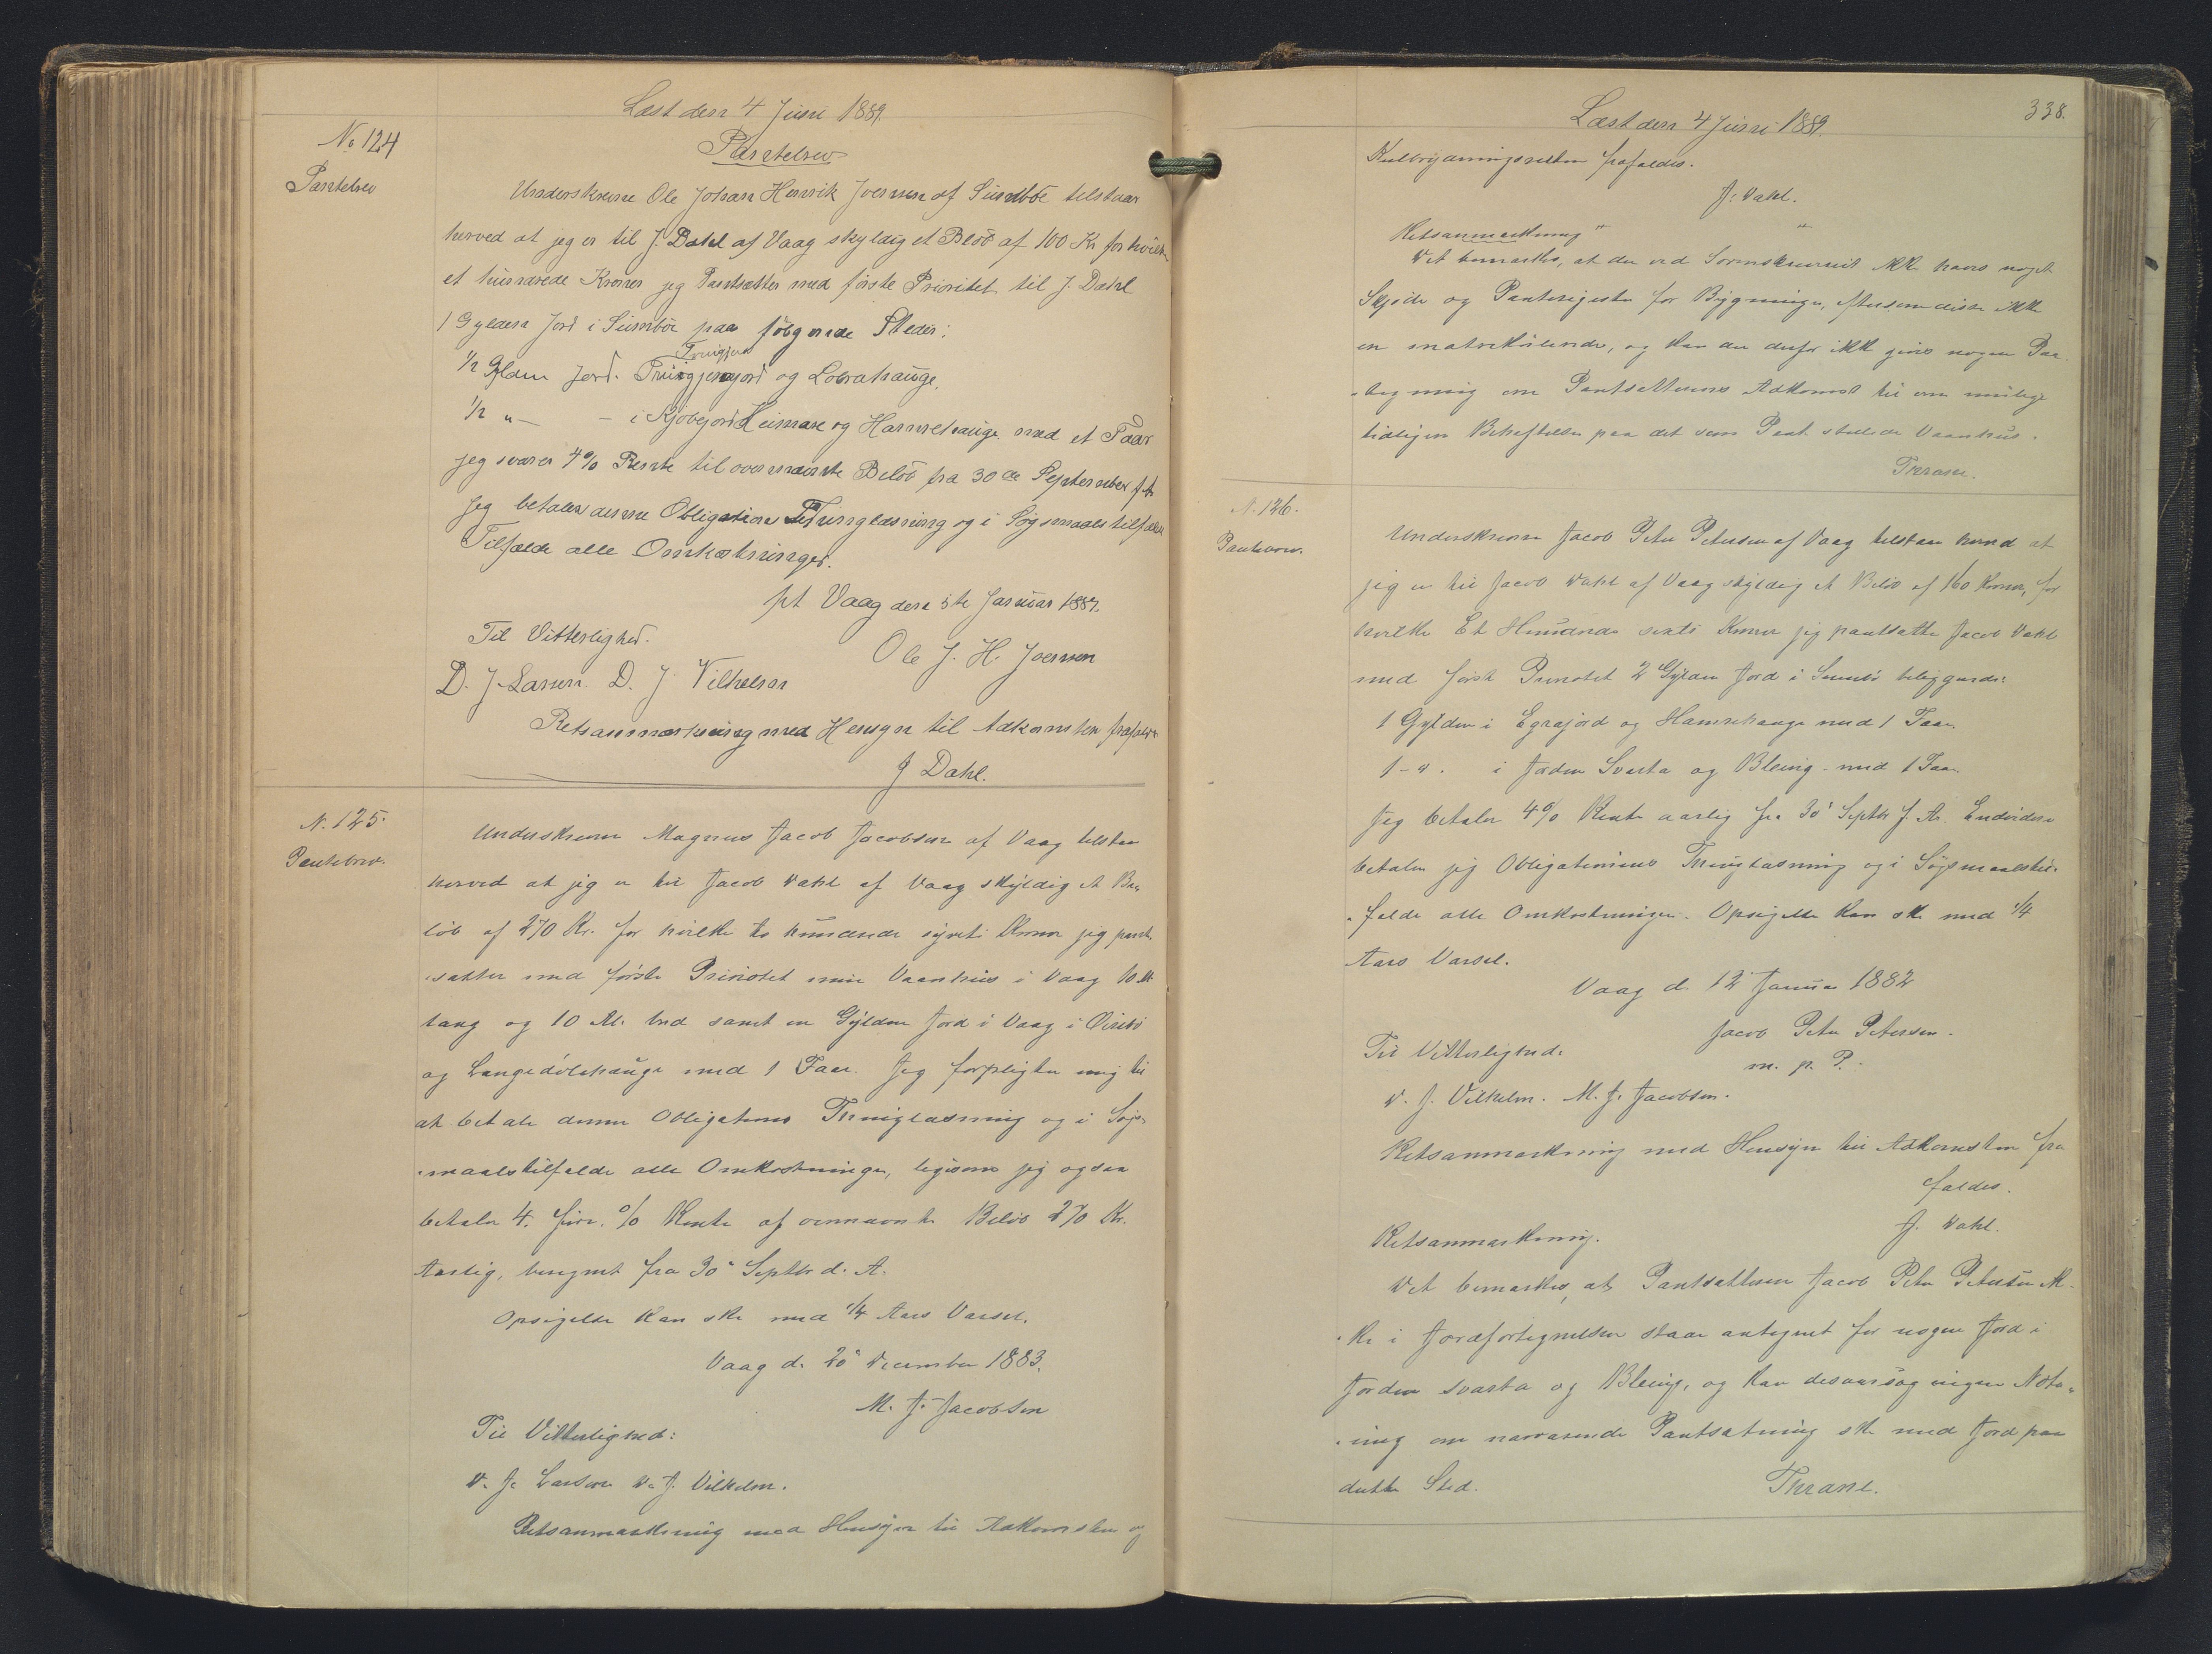 Læst den 4 Juni 1889.
No 124
Pantebrev
Pantebrev
Underskrevne Ole Johan Henrik Joensen af Sumbøe tilstaar
herved at jeg er til J. Dahl af Vaag skyldig et Beløb af 100 Kr for hvilk-
et hundrede Kroner jeg Pantsætter med første Prioritet til J. Dahl
1 Gylden Jord i Sumbøe paa følgende Steder:
1/2 Gylden Jord.
og Lobrahauge.
1/2 " — — i Kjøbejord Heimare og Hamrehauge med et Faar
jeg svarer 4% Rente til ovennævnte Beløb fra 30de September f. A.
Jeg betaler denne Obligations Thinglæsning og i Søgsmaalstilfælde
Tilfælde alle Omkostninger.
pt Vaag den 5te Januar 1887.
Til Vitterlighed.
Ole J. H. Joensen
D. J. Larsen D. J. Vilhelm
Retsanmærkning med Hensyn til Adkomsten frafaldes
J Dahl.
N. 125.
Pantebrev.
Underskrevne Magnus Jacob Jacobsen af Vaag tilstaar
herved at jeg er til Jacob Dahl af Vaag skyldig et Be-
løb af 270 Kr. for hvilke to hundrede syvti Kroner jeg pant-
sætter med første Prioritet min Vaanhus i Vaag 10 Al.
lang og 10 Al. bred samt en Gylden Jord i Vaag i
og Langedølshauge med 1 Faar. Jeg forpligter mig til
at betale denne Obligations Thinglæsning og i Søgs-
maalstilfælde alle Omkostninger, ligesom jeg ogsaa
betaler 4. fire. % Rente af ovennævnte Beløb 270 Kr.
Aarlig, beregnet fra 30' Septbr d. A.
Opsigelse kan ske med 1/4 Aars Varsel.
Vaag d. 20' December 1883.
M. J. Jacobsen
Til Vitterlighed:
D. J. Larsen D. J. Vilhelm.
Retsanmærkning med Hensyn til Adkomsten og
338.
Læst den 4 Juni 1889.
frafaldes.
J. Dahl.
Retsanmærkning " "
Det bemærkes, at der ved Sorenskriveriet ikke haves noget
Skjøde og Panteregister for Bygninger, eftersom disse ikke
ere matrikulerede, og kan der derfor ikke gives nogen Paa-
tegning om Pantsætterens Adkomst til eller mulige
tidligere Behæftelser paa det som Pant stillede Vaanhus.
Thrane.
N. 126.
Pantebrev.
Underskrevne Jacob Peter Petersen af Vaag tilstaar herved at
jeg er til Jacob Dahl af Vaag skyldig et Beløb af 160 Kroner, for
hvilke Et Hundrede sexti Kroner jeg pantsætter Jacob Dahl
med første Prioritet 2 Gylden Jord i Sumbø beliggende:
1 Gylden i Egrajord og Hamrehauge med 1 Faar.
1 - " . i Jorden Svarta og Bleing - med 1 Faar
Jeg betaler 4% Rente aarlig fra 30' Septbr f. Ar. Endvidere
betaler jeg Obligationens Thinglæsning og i Søgsmaalstil-
fælde alle Omkostninger. Opsigelse kan ske med 1/4
Aars Varsel.
Vaag d. 12 Januar 1882
Jacob Peter Petersen.
m. p. P.
Til Vitterlighed:
D. J. Vilhelm. M. J. Jacobsen.
Retsanmærkning med Hensyn til Adkomsten fra
faldes.
J. Dahl.
Retsanmærkning.
Det bemærkes, at Pantsætteren Jacob Peter Petersen ik-
ke i Jordfortegnelsen staar antegnet for nogen Jord i
Jorden Svarta og Bleing, og kan desaarsag ingen Note-
ring om nærværende Pantsætning ske med Jord paa
dette Sted.
Thrane.